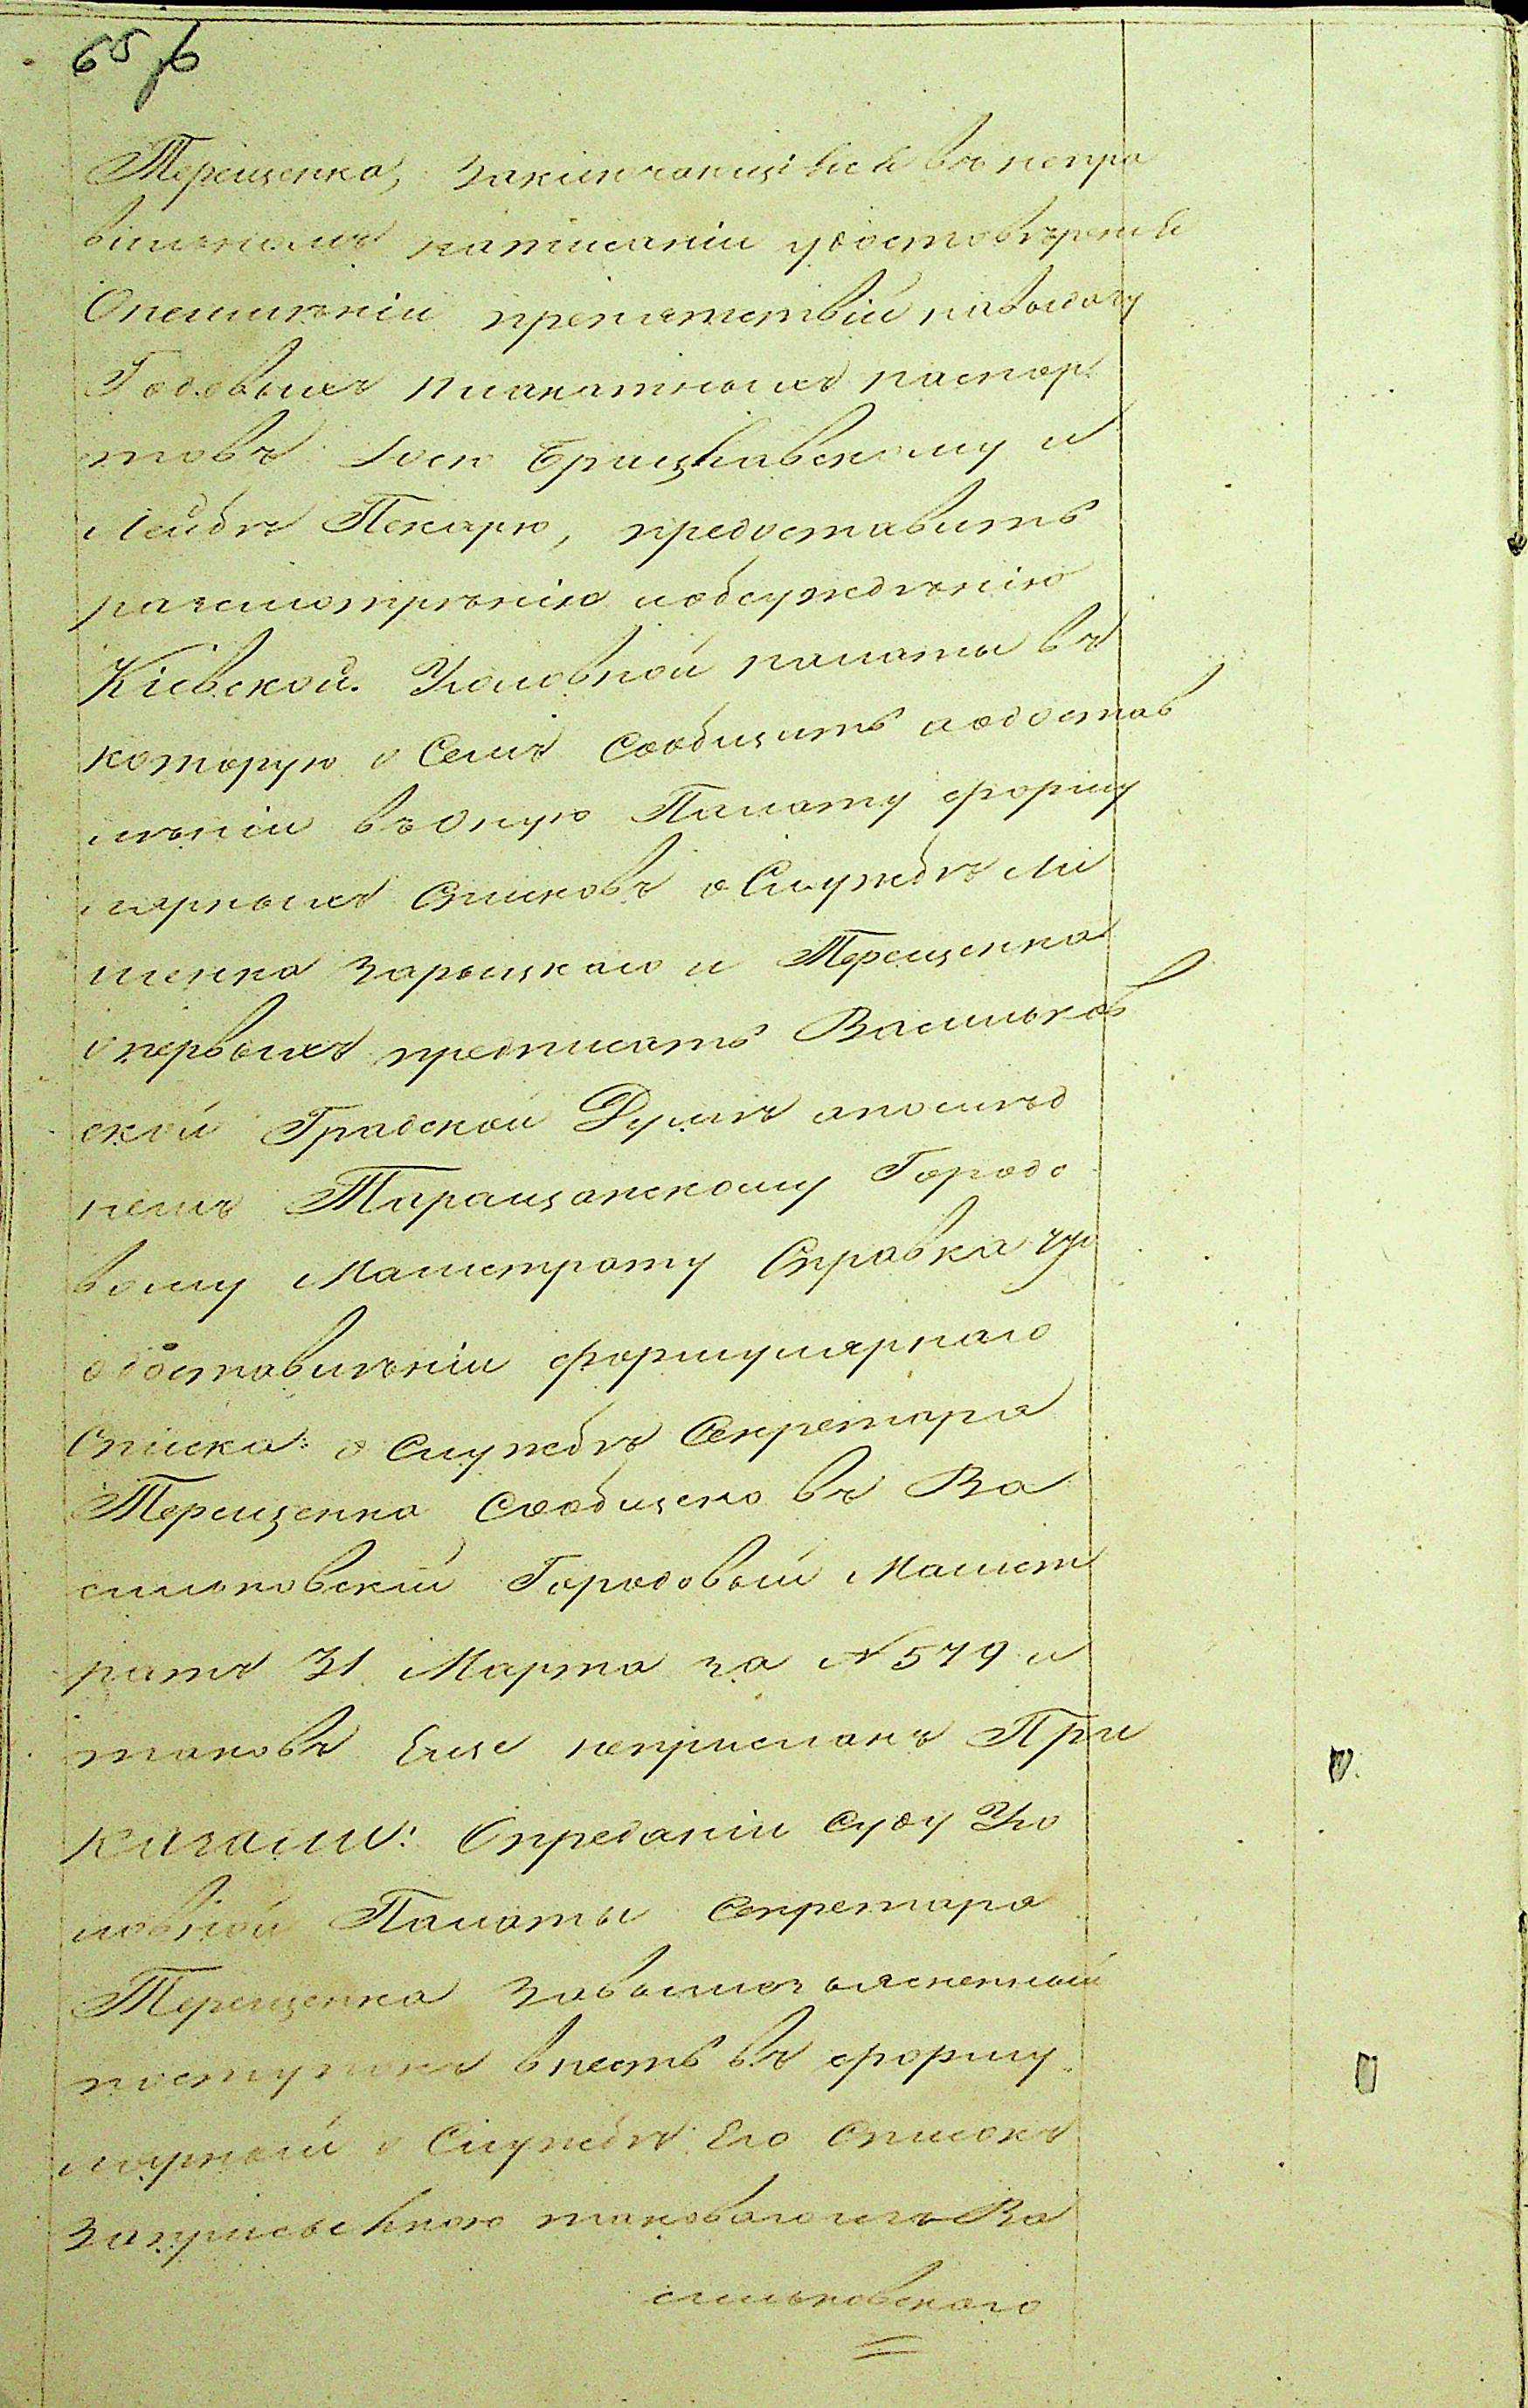 65 об
Терещенка, заключающійся въ непра
вильномъ написаніи удостовѣреній
Онеимѣніи препятствій навыдачу
Годовыхъ плакатныхъ паспор
товъ Іосю Брицлавскому и
Лейбѣ Пекарю, предоставить
разсмотрѣнію иобсужденію
Кіевской Уголовной палаты въ
которую о семъ сообщить адостав
лѣніи въ Оную Палату форму
лярныхъ списковъ о Службѣ Ли
шенка Зарыцкаго и Терещенка
о первыхъ предписать Васильков
ской Градской Думѣ апослѣд
немъ Таращанскому Городо
вому Магистрату Справка
о доставилѣніи формулярнаго
Списка о Службѣ Секретара
Терещенка сообщено въ Ва
сильковскій Городовый Магист
ратъ 31 Марта за № 579 и
таковъ Еще неприсланъ При
казали: Опреданіи суду Уго
ловной Палаты Секретара
Терещенка завышеизъясненный
поступокъ внесть въ форму
лярный о Службѣ Его Списокъ
заприсылкою таковаго изъ Ва
сильковскаго